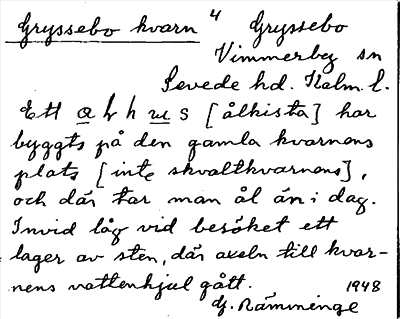 Gryssebo kvarn 4 Gryssebo
Vimmerby sn
Sevede hd. Kalm. l.
Ett a l h u s [ålkista] har
byggts på den gamla kvarnens
plats [inte skvaltkvarnens],
och där tar man ål än i dag.
Invid låg vid besöket ett
lager av sten, där axeln till kvar-
nens vattenhjul gått. 1948
G. Rämminge